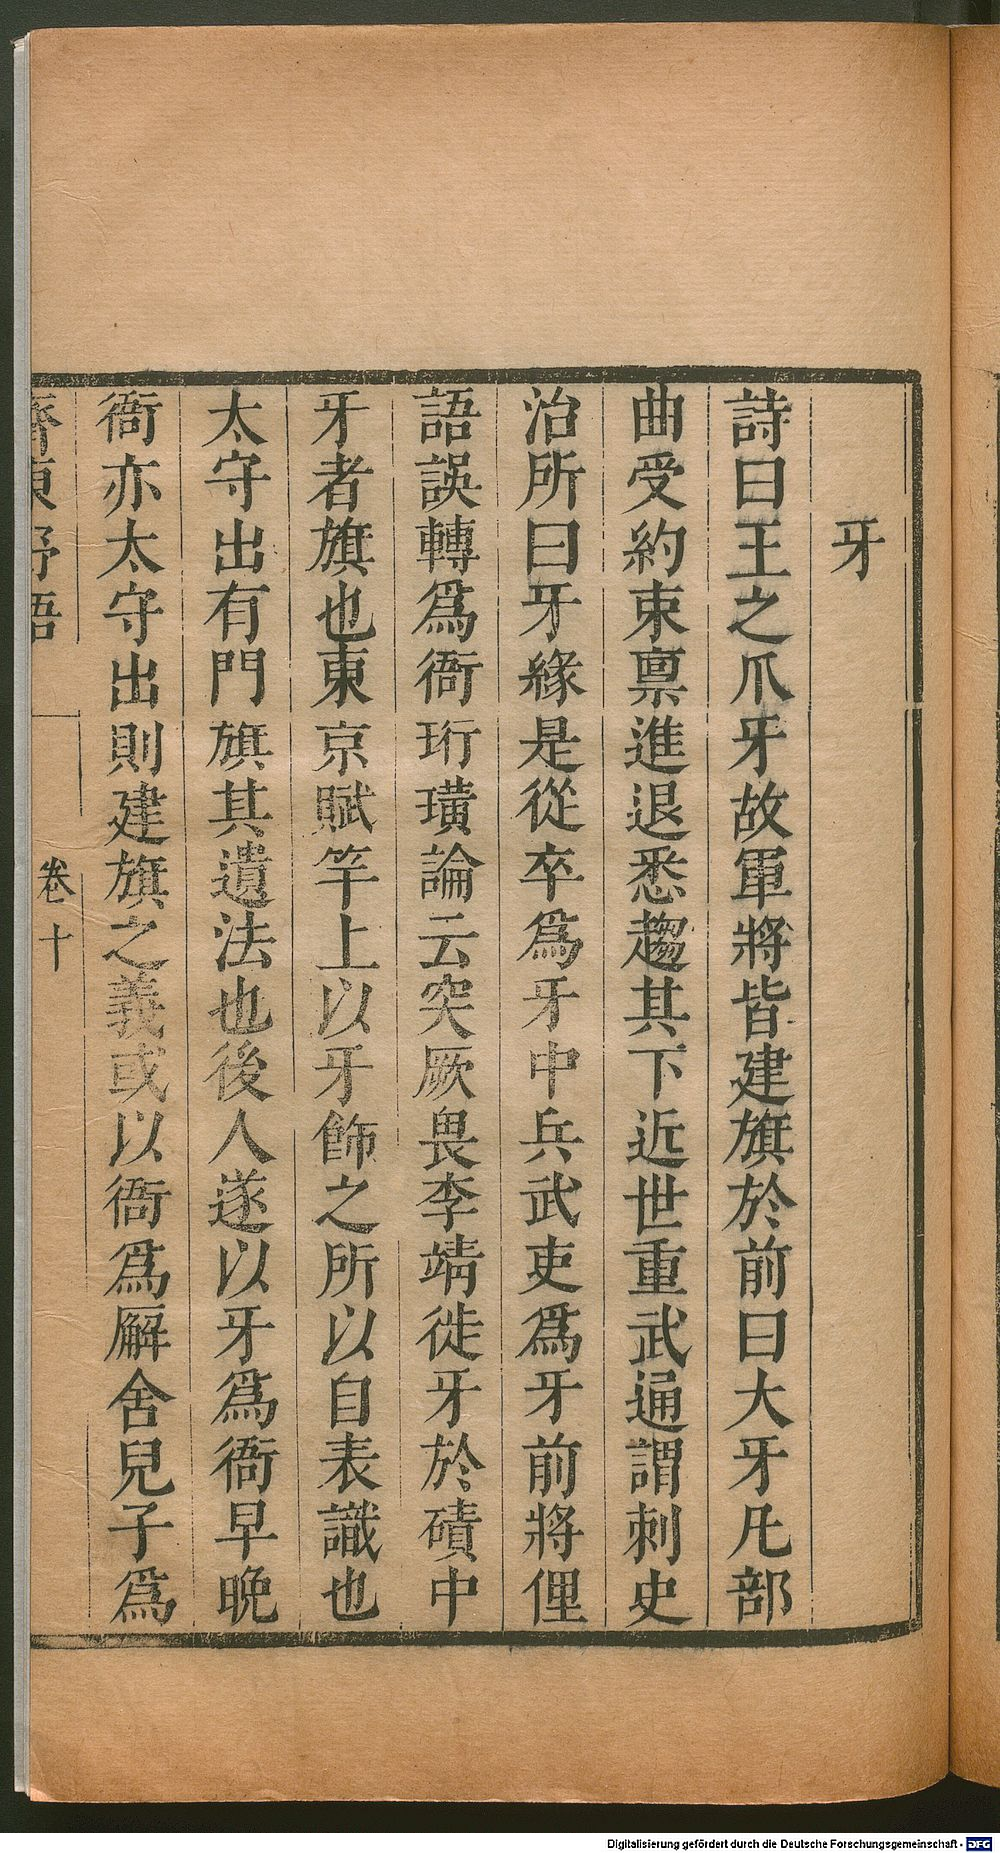 牙
詩曰王之爪牙故軍將皆建旗於前曰大牙凡部
曲受約束稟進退悉趨其下近世重武通謂刺史
治所曰牙緣是從卒為牙中兵武吏為牙前將俚
語誤轉為衙珩璜論云突厥畏李靖徙牙於磧中
牙者旗也東京賦竿上以牙飾之所以自表識也
太守出有門旗其遺法也後人遂以牙為衙早晚
衙亦太守出則建旗之義或以衙為廨舍兒子為
齊東野語
卷十
Digitalisierung gefördert durch die Deutsche Forschungsgemeinschaft - DFG